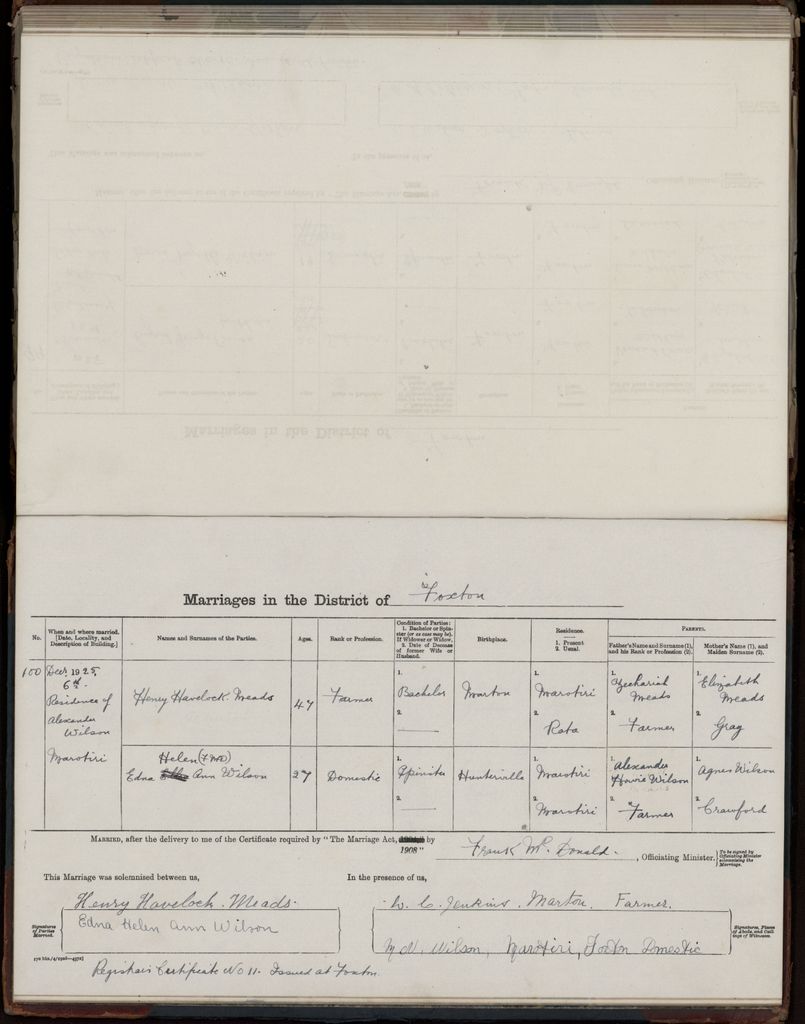 Marriages in the District of Foxton
No.
When and where married.
[Date, Locality, and
Description of Building.]
Names and Surnames of the Parties.
Ages.
Rank or Profession.
Condition of Parties:
1. Bachelor or Spin-
ster (or as case may be).
If Widower or Widow,
2. Date of Decease
of former Wife or
Husband.
Birthplace.
Residence.
1. Present
2. Usual.
PARENTS.
Father's Name and Surname (1),
and his Rank or Profession (2).
Mother's Name (1), and
Maiden Surname (2).
100
Decr. 1925,
6th.
Residence of
Alexander
Wilson
Marotiri
Henry Havelock Meads
47
Farmer
1.
Bachelor
2.
Marton
1.
Marotiri
2.
Rata
1.
Zechariah
Meads
2.
Farmer
1.
Elizabeth
Meads
2.
Gray
Helen
Edna Ann Wilson
27
Domestic
1.
Spinster
2.
Hunterville
1.
Marotiri
2.
Marotiri
1.
Alexander
Howie Wilson
2.
Farmer
1.
Agnes Wilson
2.
Crawford
MARRIED, after the delivery to me of the Certificate required by "The Marriage Act, by
1908"
Frank McDonald. , Officiating Minister.
[To be signed by
Officiating Minister
solemnizing the
Marriage.]
This Marriage was solemnised between us,
In the presence of us,
Henry Havelock. Meads.
Edna Helen Ann Wilson
[Signatures
of Parties
Married.
W. C. Jenkins. Marton. Farmer.
M N. Wilson, Marotiri, Foxton Domestic
Signatures, Places
of Abode, and Call-
ings of Witnesses.
Registrars Certificate No 11. Issued at Foxton